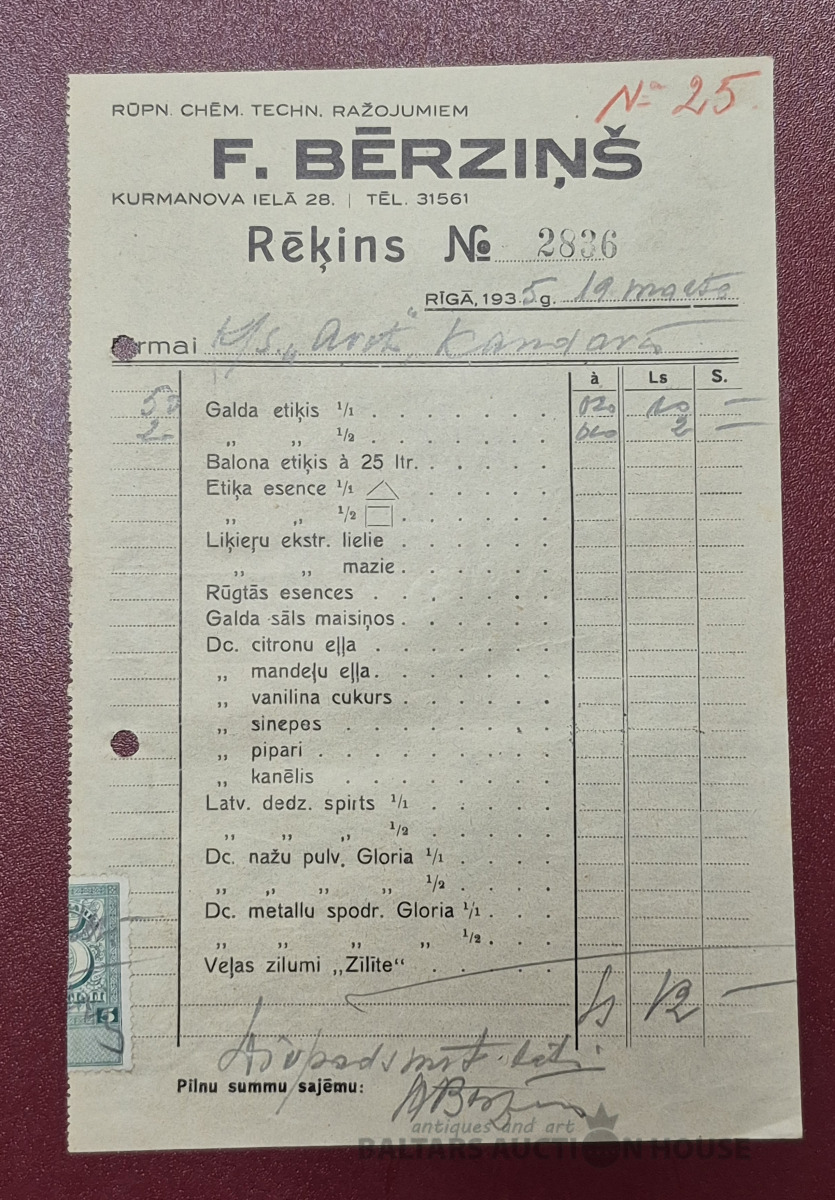 № 25
RŪPN. CHĒM. TECHN. RAŽOJUMIEM
F. BĒRZIŅŠ
KURMANOVA IELĀ 28. | TĒL. 31561
Rēķins № 2836
RĪGĀ, 1935 g. 19 marta
Firmai Kandavā
à Ls S.
Galda etiķis 1/1
2 „ „ 1/2 2 —
Balona etiķis à 25 ltr.
Etiķa esence 1/1
„ „ 1/2
Liķieŗu ekstr. lielie
„ „ mazie
Rūgtās esences
Galda sāls maisiņos
Dc. citronu eļļa
„ mandeļu eļļa
„ vanilina cukurs
„ sinepes
„ pipari
„ kanēlis
Latv. dedz. spirts 1/1
„ „ „ 1/2
Dc. nažu pulv. Gloria 1/1
„ „ „ „ 1/2
Dc. metallu spodr. Gloria 1/1
„ „ „ „ 1/2
Veļas zilumi „Zīlīte“
Ls 12 —
Divpadsmit lati
Pilnu summu saņēmu:
antiques and art
BALTARS AUCTION HOUSE